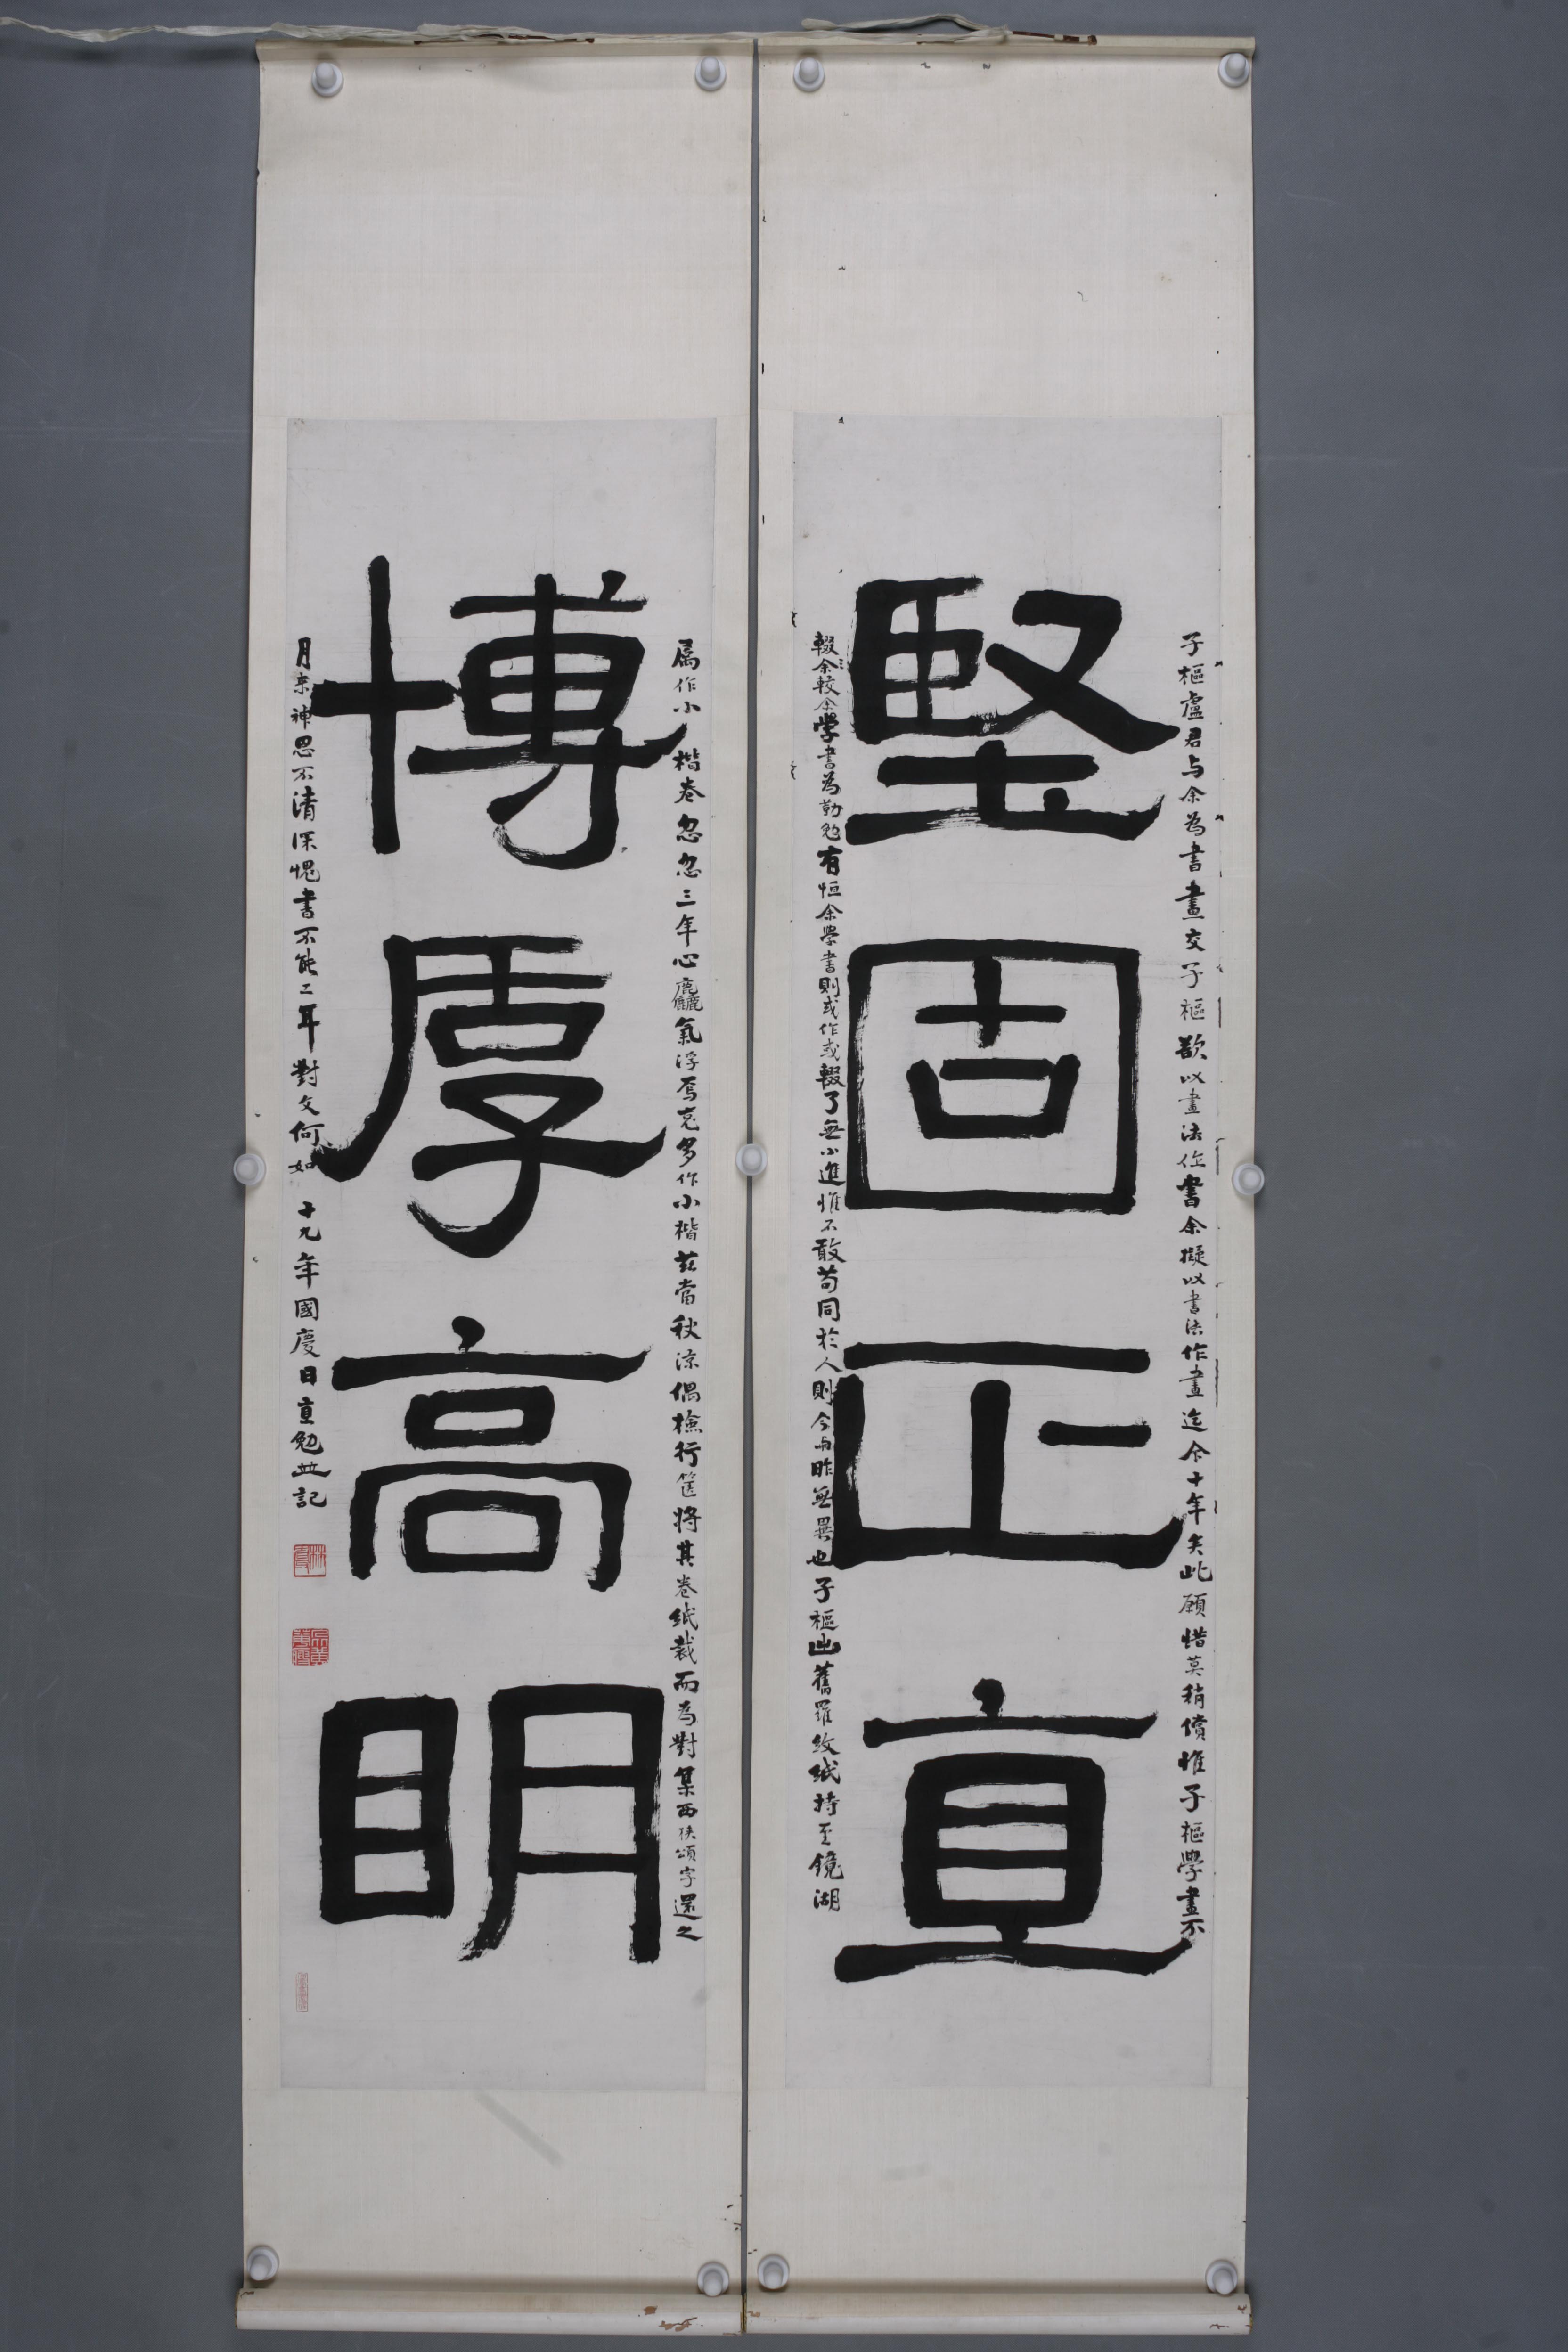 堅固正直
子樞盧君与余為書畫交子樞欲以畫法作書余擬以書法作畫迄今十年矣此願惜莫稍償惟子樞學畫不
輟余較余學書為勤勉有恒余學書則或作或輟了無小進惟不敢苟同於人則今与昨無異也子樞出舊羅紋紙持至鏡湖
博厚高明
屬作小楷卷忽忽三年心麤氣浮焉克多作小楷茲當秋涼偶檢行篋將其卷紙裁而為對集西狹頌字還之
月來神思不清深愧書不能工耳對文何如 十九年國慶日直勉並記